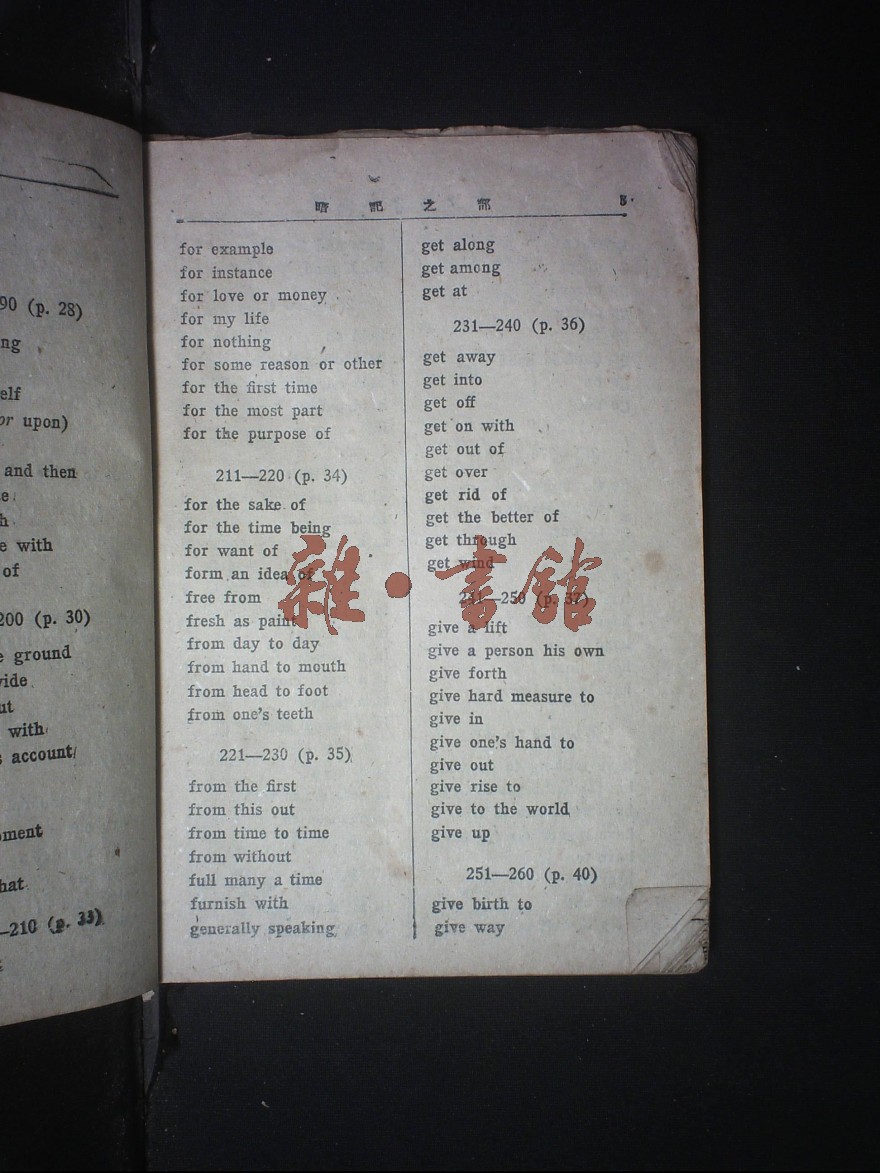 90 (p. 28)
ng
elf
or upon)
and then
e with
of
200 (p. 30)
e ground
vide
ut
with
s account
ment
hat
—210 (p. 33)
暗記之部 5
for example
for instance
for love or money
for my life
for nothing
for some reason or other
for the first time
for the most part
for the purpose of
211—220 (p. 34)
for the sake of
for the time being
for want of
form an idea of
free from
fresh as paint
from day to day
from hand to mouth
from head to foot
from one's teeth
221—230 (p. 35)
from the first
from this out
from time to time
from without
full many a time
furnish with
generally speaking
get along
get among
get at
231—240 (p. 36)
get away
get into
get off
get on with
get out of
get over
get rid of
get the better of
get through
get wind
241—250 (p. 37)
give a lift
give a person his own
give forth
give hard measure to
give in
give one's hand to
give out
give rise to
give to the world
give up
251—260 (p. 40)
give birth to
give way
雜·書館